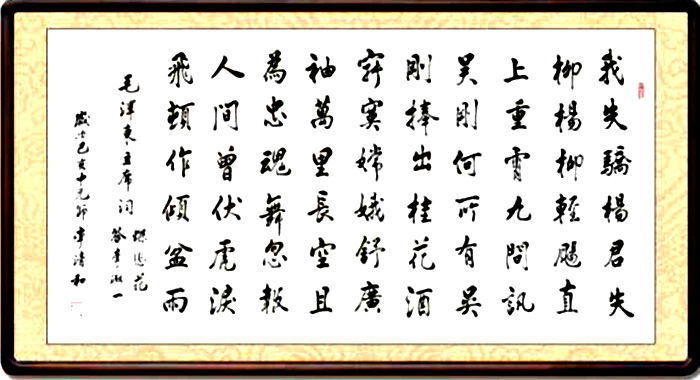 我失驕楊君失
柳楊柳輕颺直
上重霄九問訊
吴剛何所有吴
剛捧出桂花酒
寂寞嫦娥舒廣
袖萬里長空且
為忠魂舞忽報
人間曾伏虎淚
飛頓作傾盆雨
毛澤東主席詞
蝶恋花
答李淑一
歲次己亥